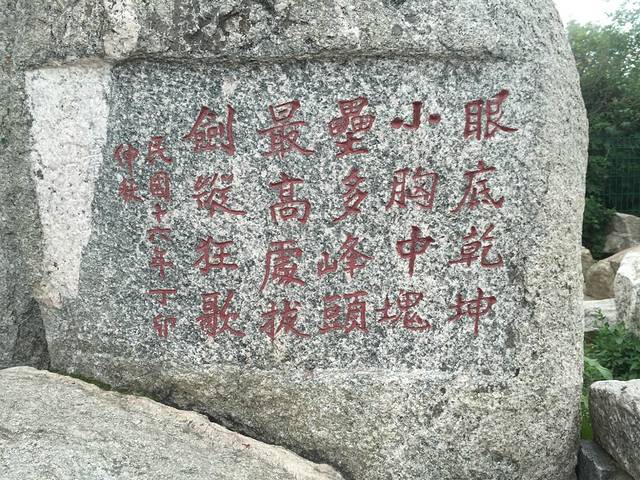 眼底乾坤
小胸中塊
壘多峰頭
最高處拔
劍縱狂歌
民國十六年丁卯
仲秋